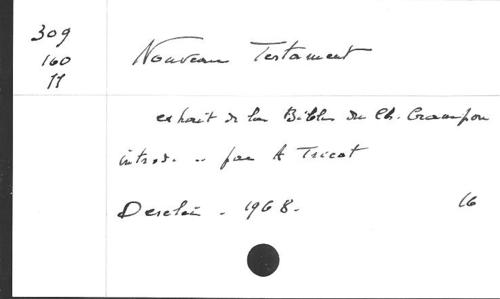 309
160
11
Nouveau Testament
extrait de la Bible du Ch. Crampon
introd. .. par A Tricot
Desclée . 1968. 16